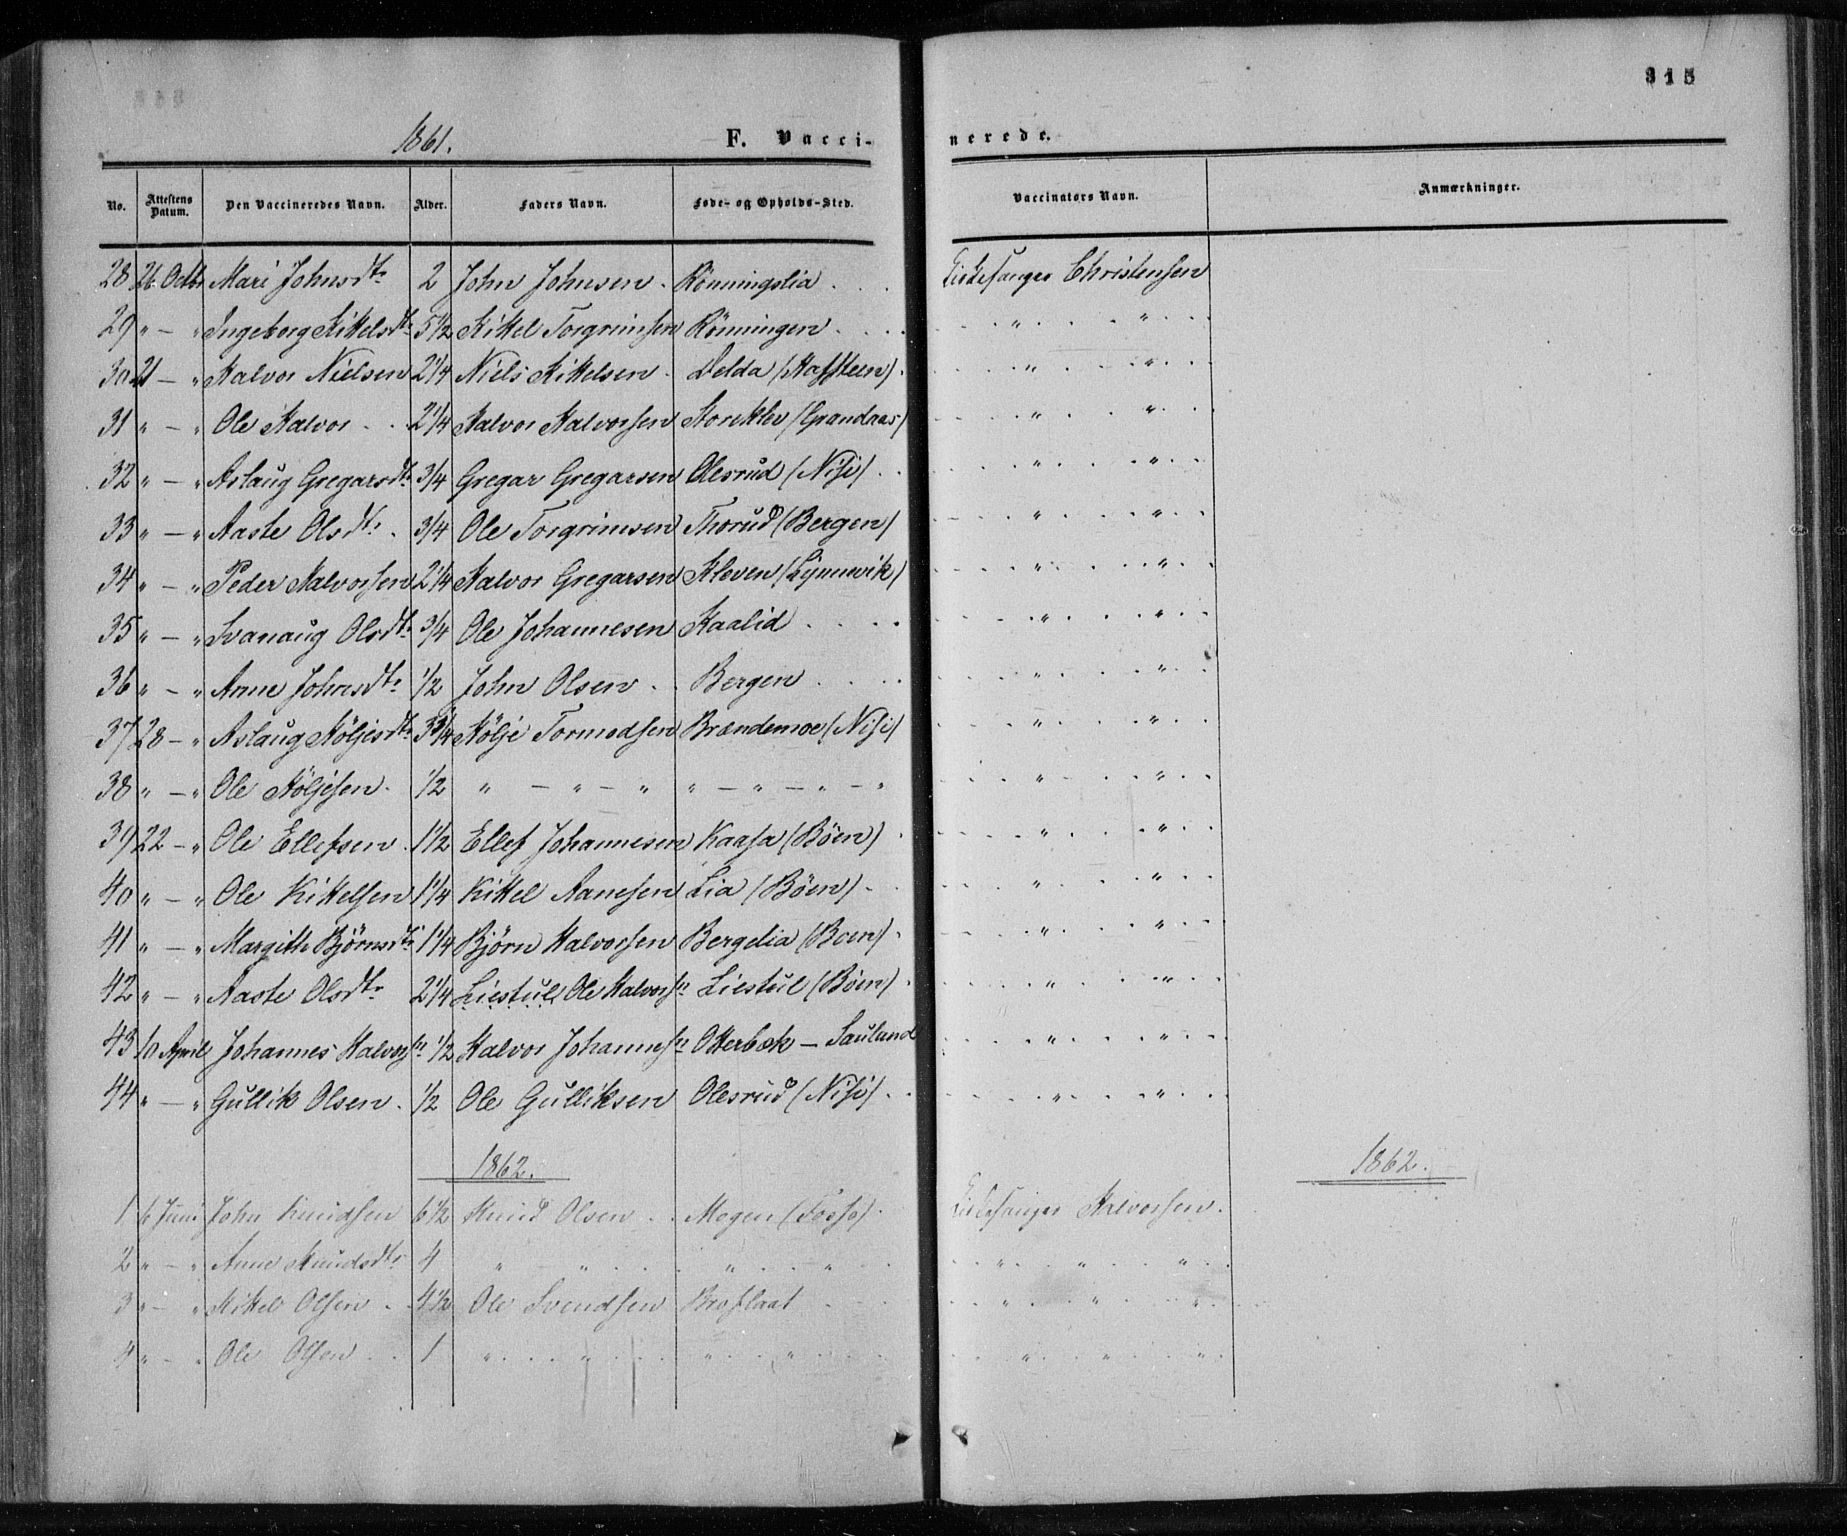 315
1861. F. Vacci-nerede.
No. Attestens Datum. Den Vaccineredes Navn. Alder. Faders Navn. Føde- og Opholds-Sted. Vaccinators Navn. Anmærkninger.
28 26 Octbr Mari Johnsdtr 2 John Johnsen . Rönningslia . . . Kirkesanger Christensen
29 " — " Ingeborg Kittelsdtr 5 1/2 Kittel Torgrimsen Rönningen . . . . " . . " . .
30 21 — " Halvor Nielsen 2 1/4 Niels Kittelsen . Delda (Haffteen) . . " . . " . .
31 " — " Ole Halvor . . 2 1/4 Halvor Halvorsen Storeklev (Grandaas) . " . . " . .
32 " — " Aslaug Gregarsdtr 3/4 Gregar Gregarsen Olesrud (Nisi) . . " . . " . .
33 " — " Aaste Olsdtr . 3/4 Ole Torgrimsen Thorud (Bergen) . " . . " . .
34 " — " Peder Halvorsen 2 1/4 Halvor Gregarsen Kleven (Lynnevik) . " . . " . .
35 " — " Svanaug Olsdtr 3/4 Ole Johannesen Kaalid . . . . " . . " . .
36 " — " Anne Johnsdtr 1/2 John Olsen . . Bergen . . . . " . . " . .
37 28 — " Aslaug Höljesdtr 3 3/4 Hölje Tormodsen Brændemoe (Nisi) . " . . " . .
38 " — " Ole Höljesen . 1/2 " — " — " " — " — " — " . " . . " . .
39 22 — " Ole Ellefsen . 1 1/2 Ellef Johannesen Kaasa (Böen) . . " . . " . .
40 " — " Ole Kittelsen 1 1/4 Kittel Aanesen Lia (Böen) . . " . . " . .
41 " — " Margithe Björnsdtr 1 1/4 Björn Halvorsen Bergelia (Boen) . . " . . " . .
42 " — " Aaste Olsdtr 2 1/4 Liestul Ole Halvorsn Liestul (Böen) . . " . . " . .
43 10 April Johannes Halvorsn 1/2 Halvor Johannesn Otterbæk — Sauland . " . . " . .
44 " — " Gullik Olsen . 1/2 Ole Gulliksen Olesrud (Nisi) . . " . . " . .
1862. 1862.
1 6 Juni John Knudsen 6 1/2 Knud Olsen . . Mogen (Fosso) . Kirkesanger Halvorsen .
2 " — " Anne Knudsdtr 4 " . " . . " . . " . . " . . " . . " . .
3 " — " Kittel Olsen . 4 1/2 Ole Svendsen Broslaat . . " . . " . . " .
4 " — " Ole Olsen . . 1 " . . . " . . " . . . " . . " . . " . . " .